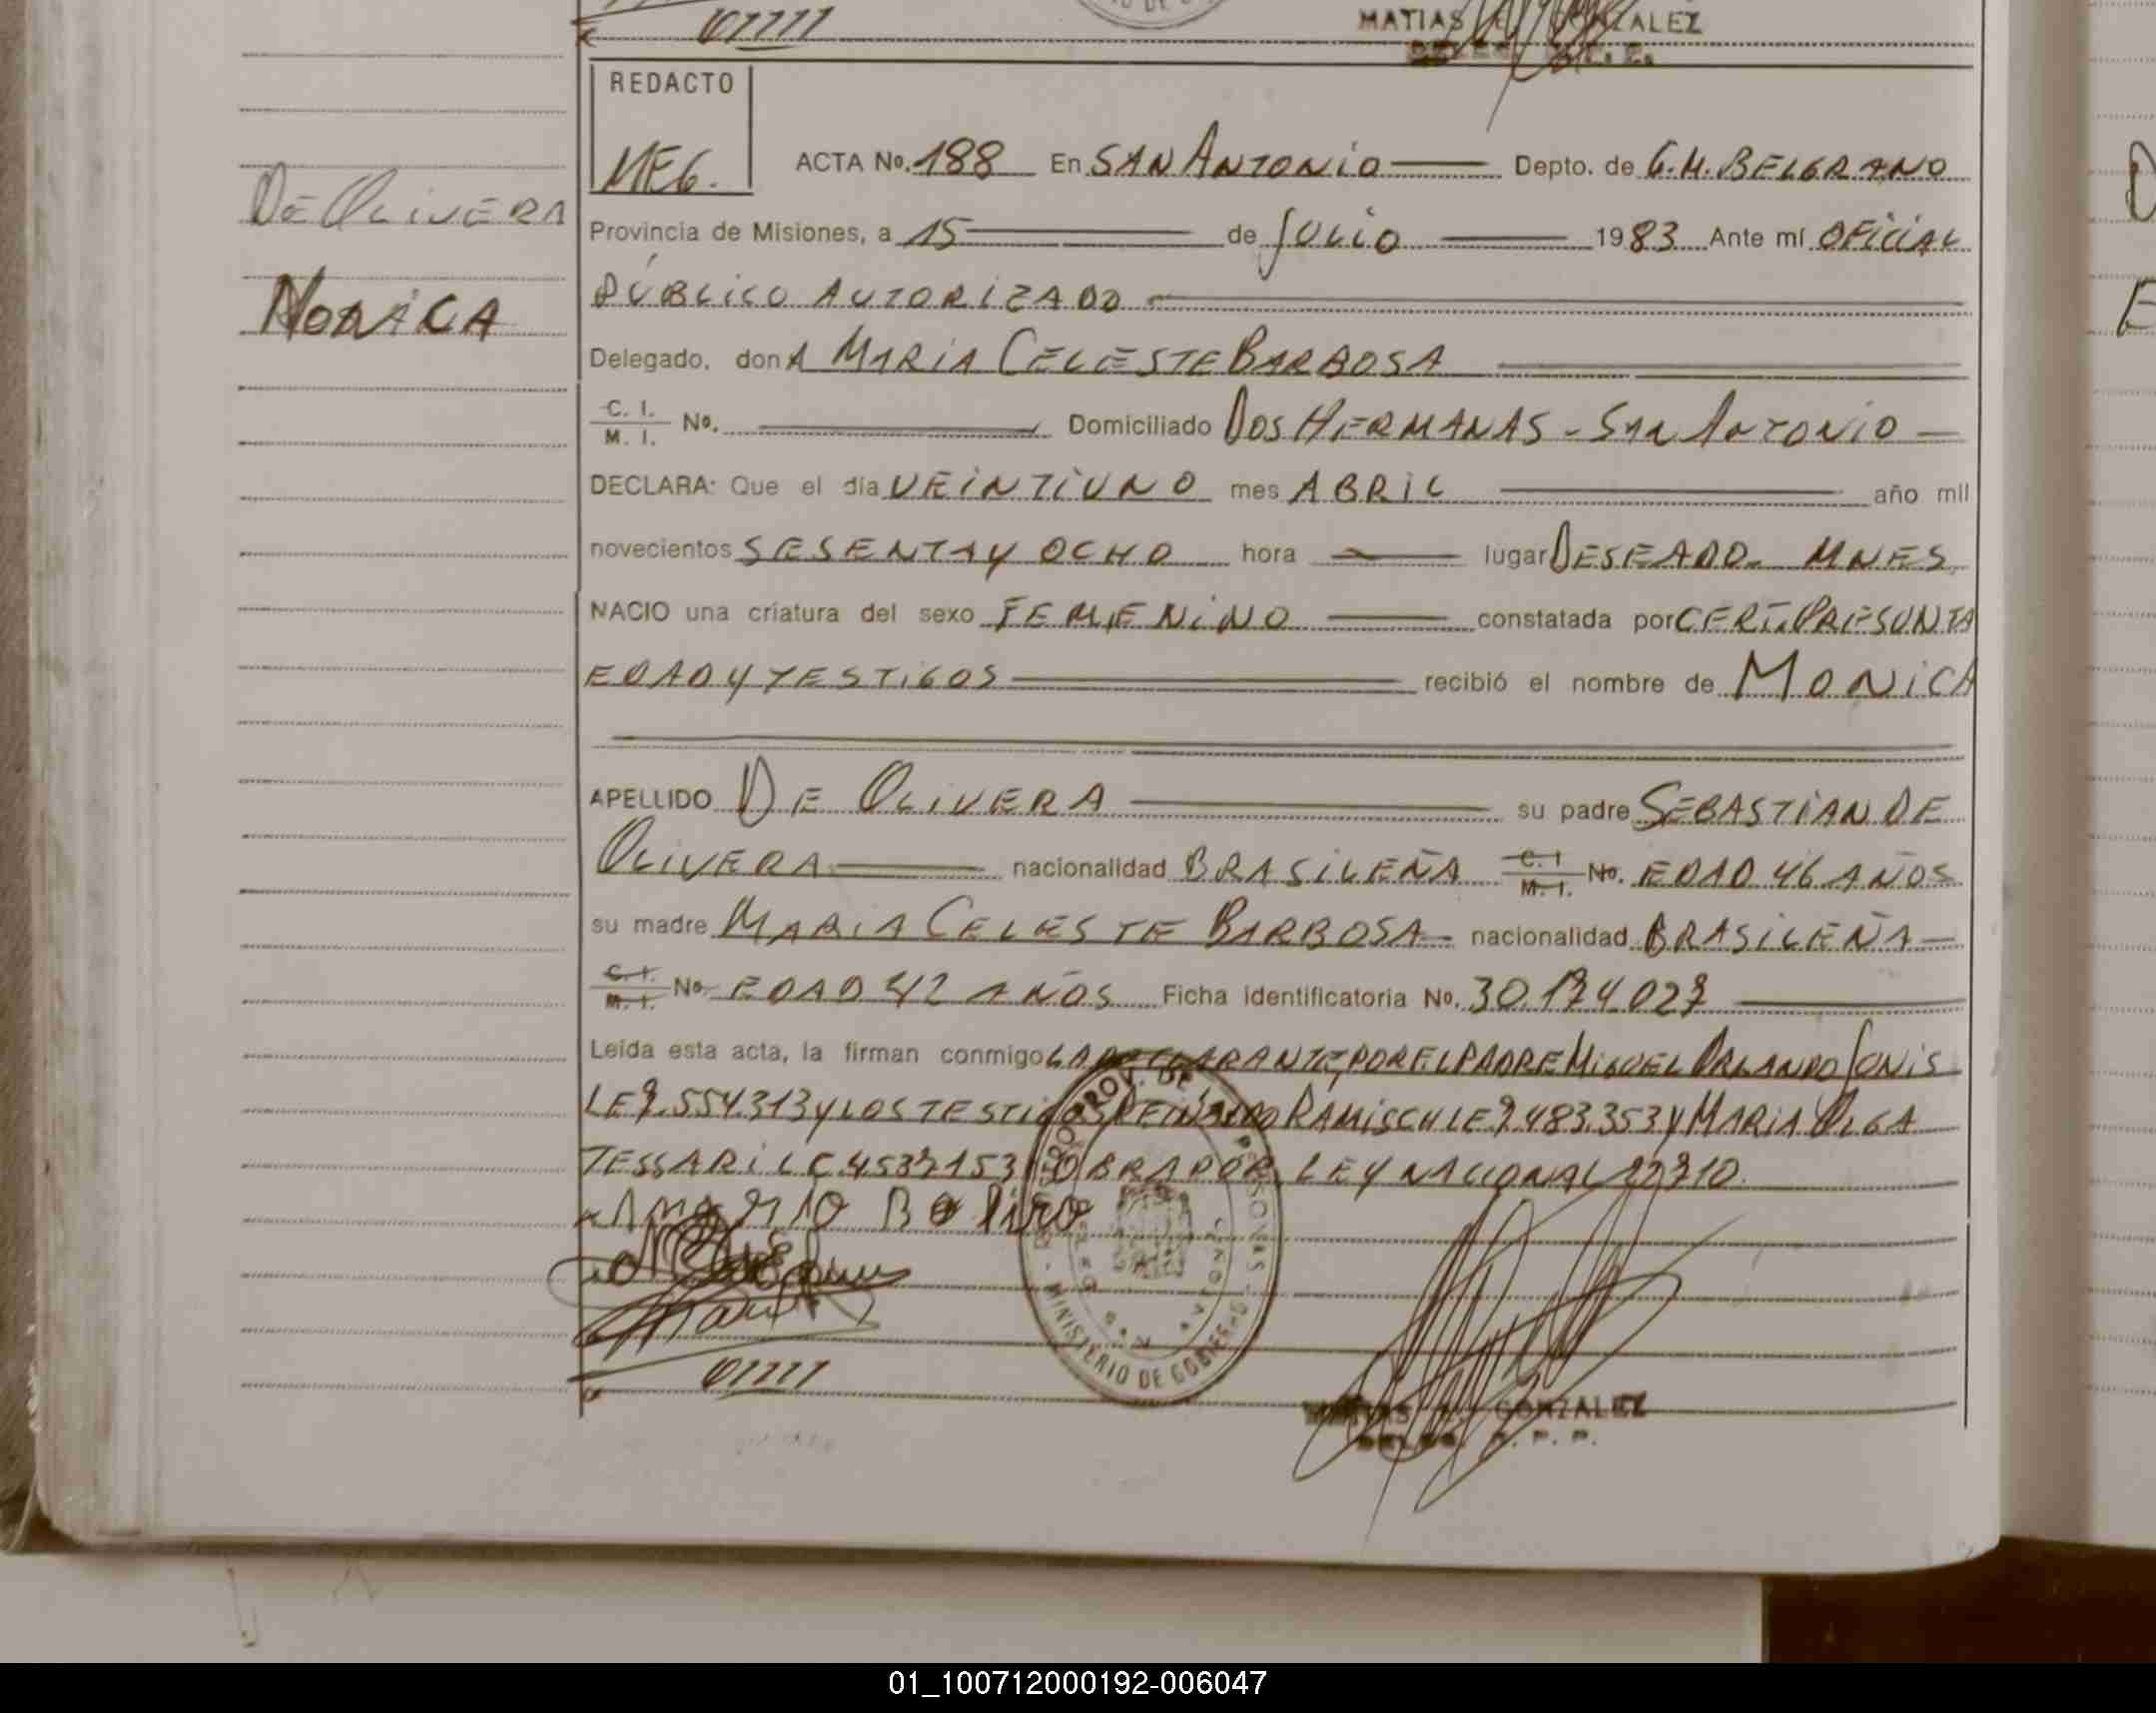 01111
MATIAS GONZALEZ
REDACTO
MEG.
ACTA No. 188 En SAN ANTONIO Depto. de G.M. BELGRANO
DE OLIVERA
Provincia de Misiones, a 15 de JULIO 1983 Ante mí OFICIAL
PÚBLICO AUTORIZADO
MONICA
Delegado, donA MARIA CELESTE BARBOSA
C. I. / M. I. No. Domiciliado DOS HERMANAS - SAN ANTONIO
DECLARA: Que el día VEINTIUNO mes ABRIL año mil
novecientos SESENTA Y OCHO hora lugar DESEADO - MNES
NACIO una criatura del sexo FEMENINO constatada por CERT. PRESUNTA
EDAD Y TESTIGOS recibió el nombre de MONICA
APELLIDO DE OLIVERA su padre SEBASTIAN DE
OLIVERA nacionalidad BRASILEÑA C. I. / M. I. No. EDAD 46 AÑOS
su madre MARIA CELESTE BARBOSA nacionalidad BRASILEÑA
C. I. / M. I. No. EDAD 42 AÑOS Ficha identificatoria No. 30.174.027
Leída esta acta, la firman conmigo LA DECLARANTE, POR EL PADRE MIGUEL ORLANDO
LE 7.554.313 Y LOS TESTIGOS REINALDO RAMISCH LE 7.483.353 Y MARIA OLGA
TESSARI LC 4537153 OBRA POR LEY NACIONAL
MINISTERIO DE GOBIERNO
01111
GONZALEZ
01_100712000192-006047